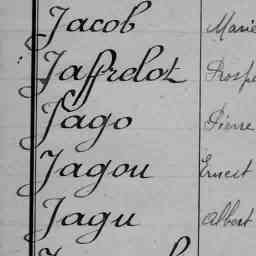 Jacob Marie
Jaffrelot Prosper
Jago Pierre
Jagou Ernest
Jagu Albert